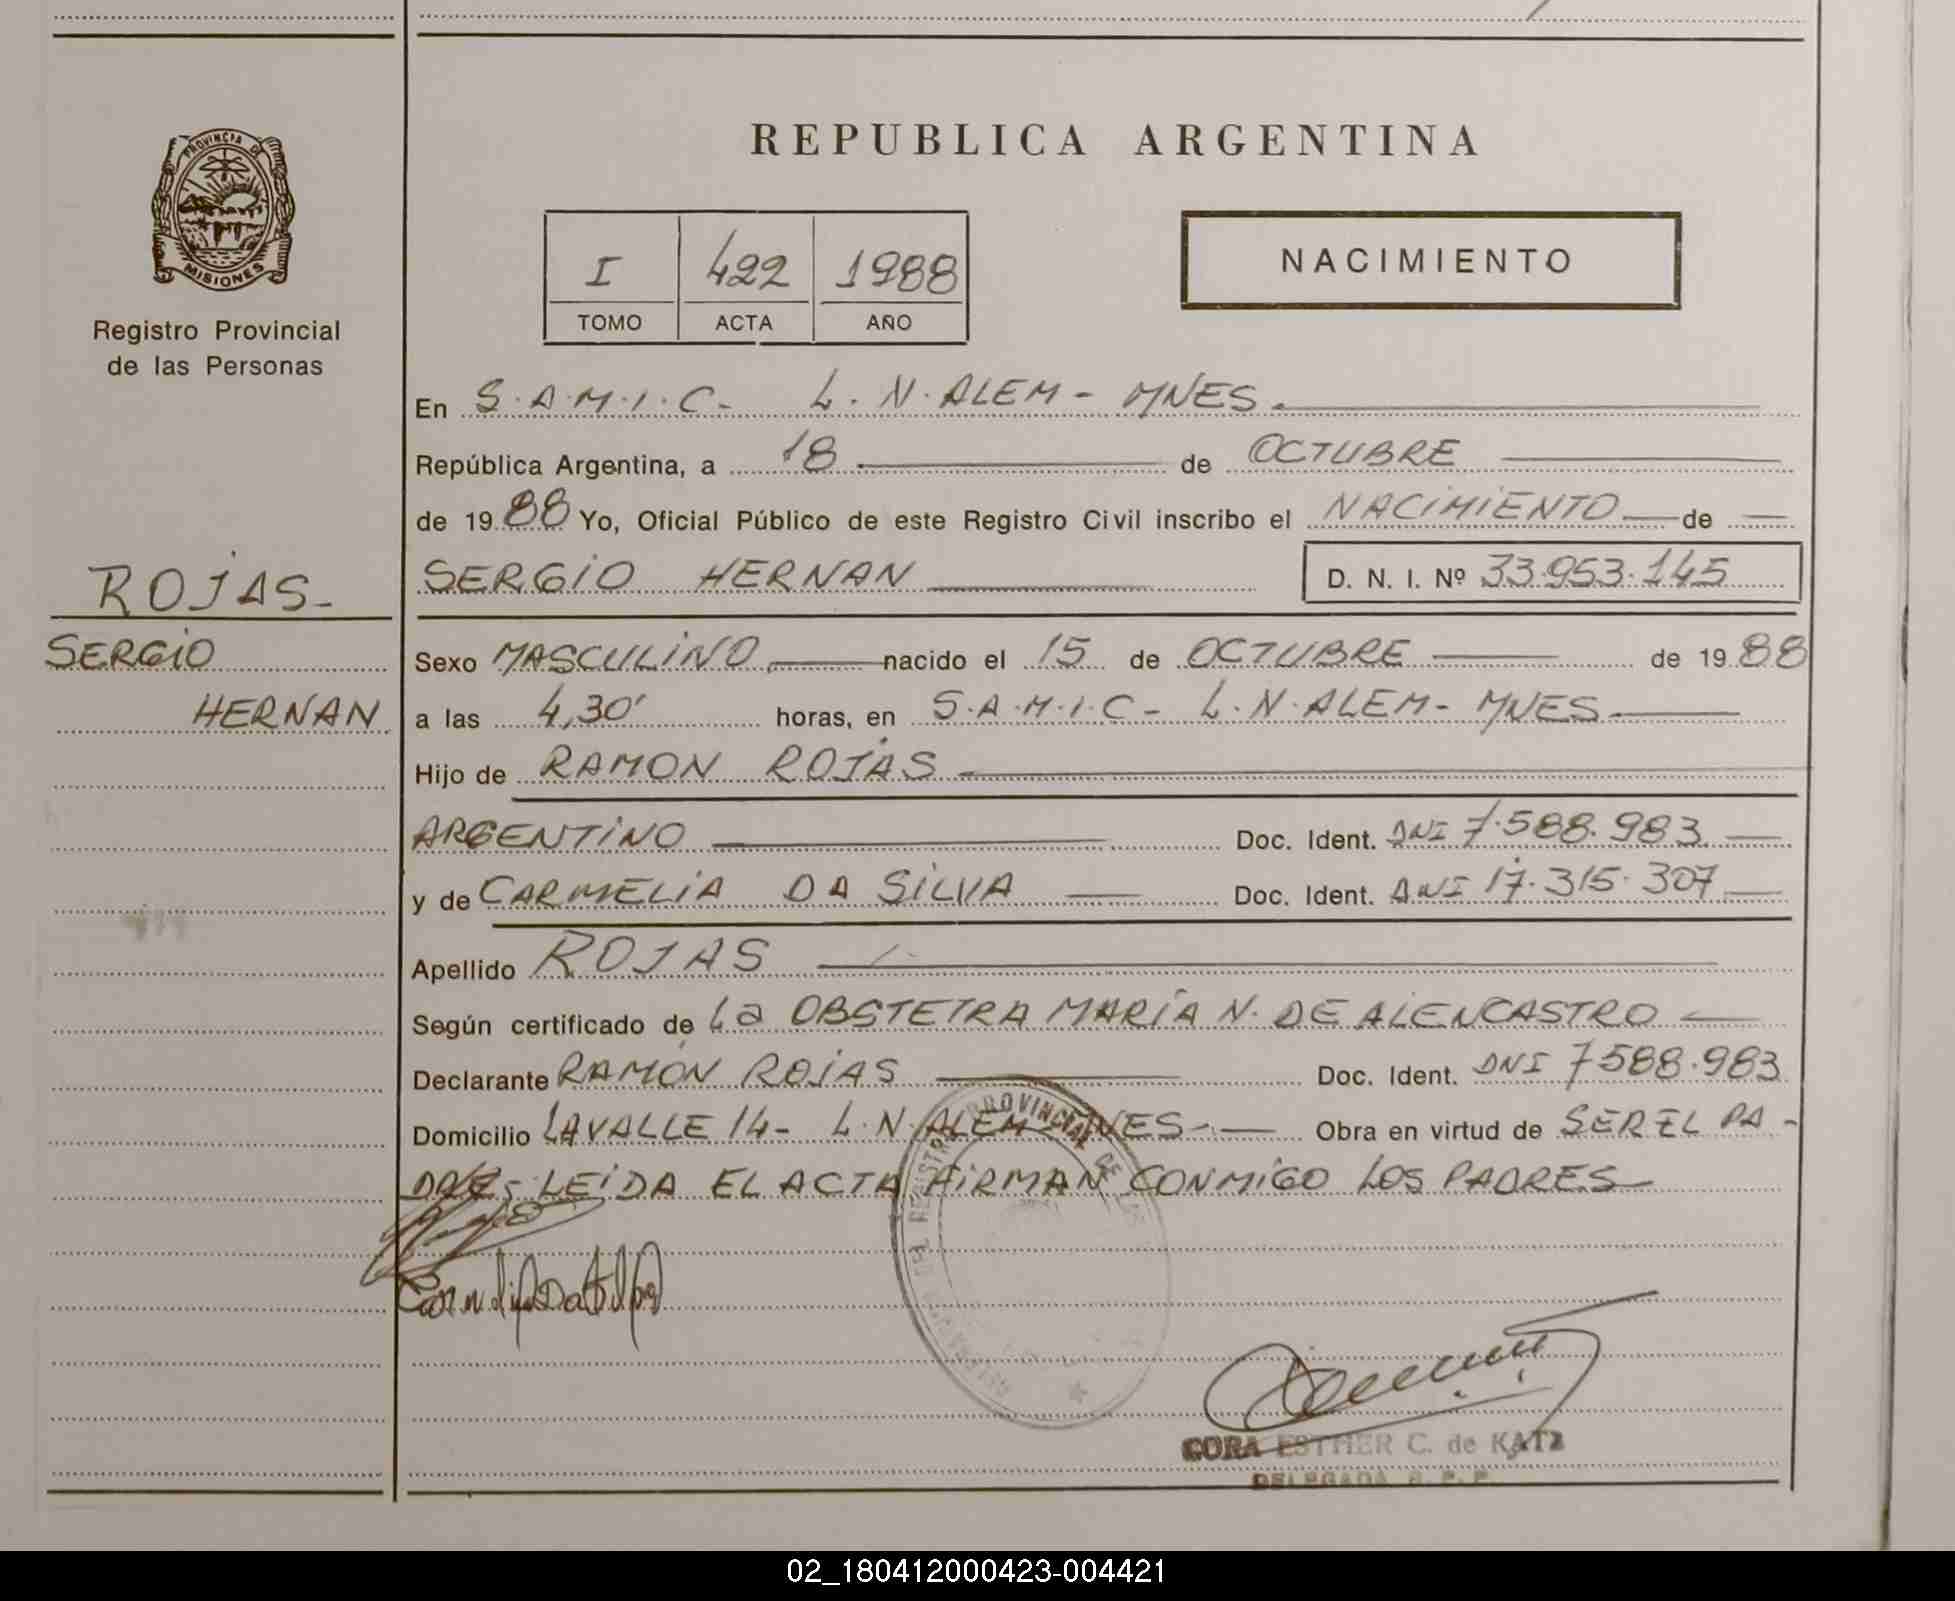 PROVINCIA DE
MISIONES
Registro Provincial
de las Personas
ROJAS-
SERGIO
HERNAN
REPUBLICA ARGENTINA
I 422 1988
TOMO ACTA AÑO
NACIMIENTO
En S.A.M.I.C- L.N.ALEM- MNES.
República Argentina, a 18 de OCTUBRE
de 1988 Yo, Oficial Público de este Registro Civil inscribo el NACIMIENTO de
SERGIO HERNAN D. N. I. Nº 33.953.145
Sexo MASCULINO nacido el 15 de OCTUBRE de 1988
a las 4,30' horas, en S.A.M.I.C- L.N.ALEM- MNES
Hijo de RAMON ROJAS
ARGENTINO Doc. Ident. DNI 7.588.983
y de CARMELIA DA SILVA Doc. Ident. DNI 17.315.307
Apellido ROJAS
Según certificado de La OBSTETRA MARÍA N. DE ALENCASTRO
Declarante RAMÓN ROJAS Doc. Ident. DNI 7588.983
Domicilio LAVALLE 14- L.N.ALEM-MNES- Obra en virtud de SER EL PA-
DRE- LEIDA EL ACTA FIRMAN CONMIGO LOS PADRES
REGISTRO PROVINCIAL DE LAS
Carmelia Da Silva
CORA ESTHER C. de KATZ
DELEGADA R. P. P.
02_180412000423-004421